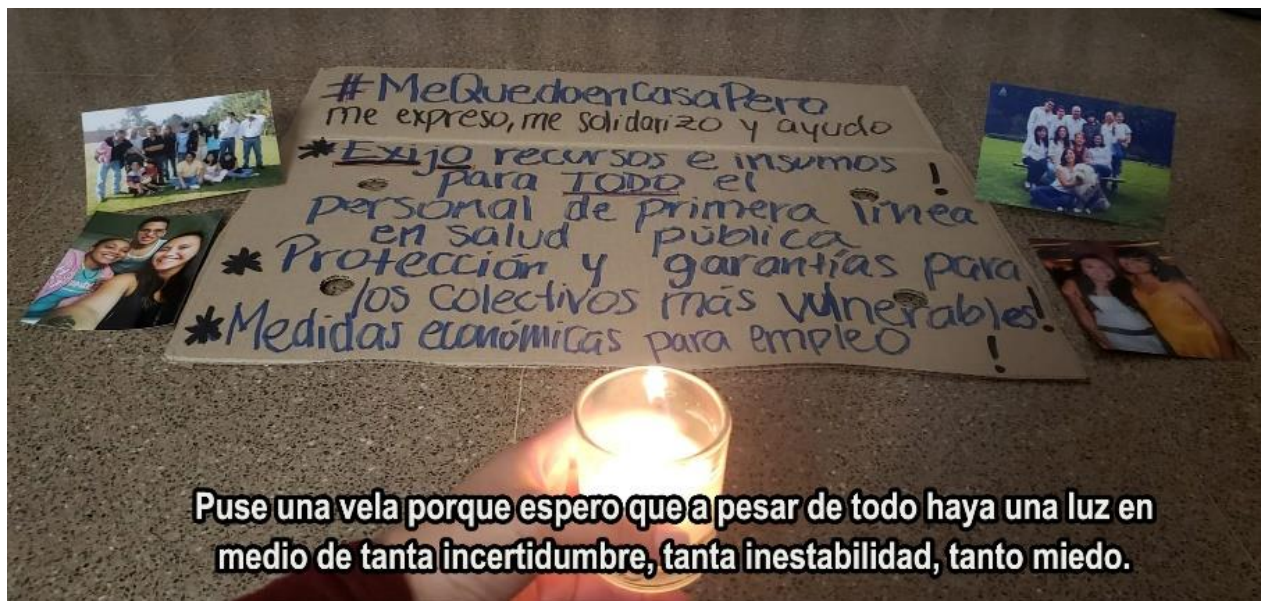 #MeQuedoenCasaPero
me expreso, me solidarizo y ayudo
* Exijo recursos e insumos
para TODO el !
personal de primera línea
en salud pública
* Protección y garantías para
los colectivos más vulnerables!
* Medidas económicas para empleo !
Puse una vela porque espero que a pesar de todo haya una luz en
medio de tanta incertidumbre, tanta inestabilidad, tanto miedo.